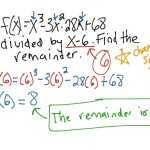 f(x) = x³-3x²-28x+68
divided by x-6. Find the
remainder.
(6)=(6)³-3(6)²-28(6)+68
(6) = 8
The remainder is